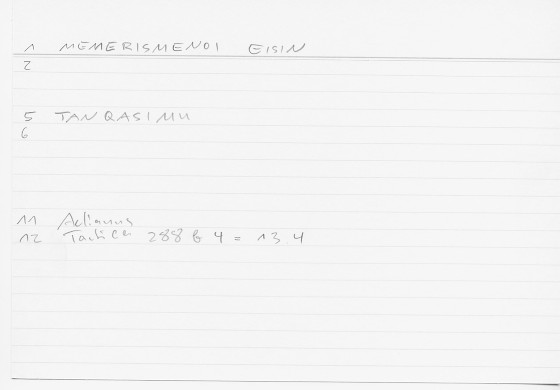 1 MEMERISMENOI EISIN
2
5 TANQASIMU
6
11 Aelianus
12 Tactica 288 B 4 = 13 4